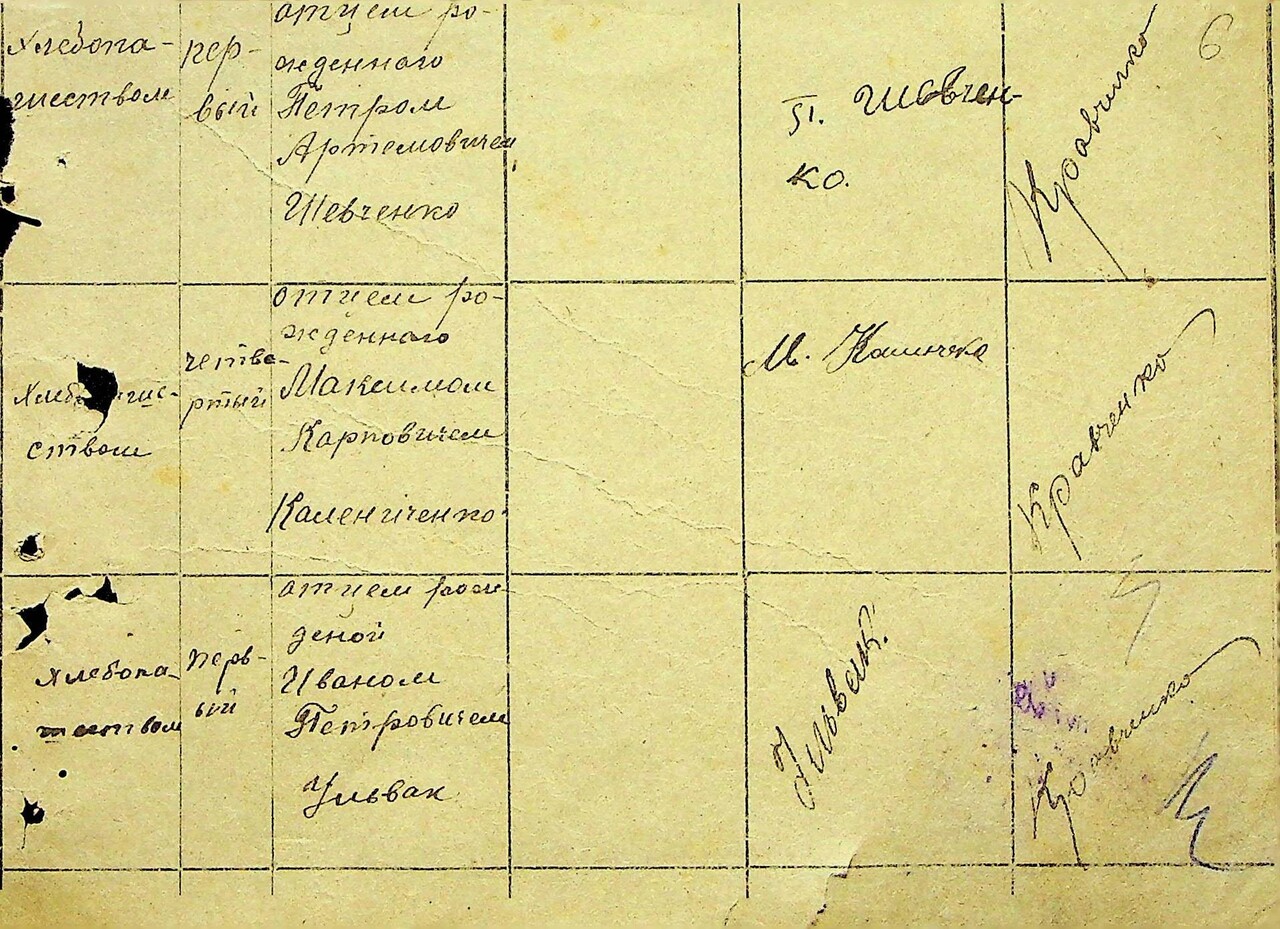 6
Хлебопа-
шеством
пер-
вый
отцем ро-
жденного
Петром
Артемовичем
Шевченко
П. Шевчен-
ко.
Кравченко
ством
четве-
ртый
отцем ро-
жденного
Максимом
Карповичем
Калениченко
М. Калиничека
Кравченко
хлебопа-
шеством
перв-
ый
отцем рож-
деной
Иваном
Петровичем
Ульвак
Ульвак.
Кравченко